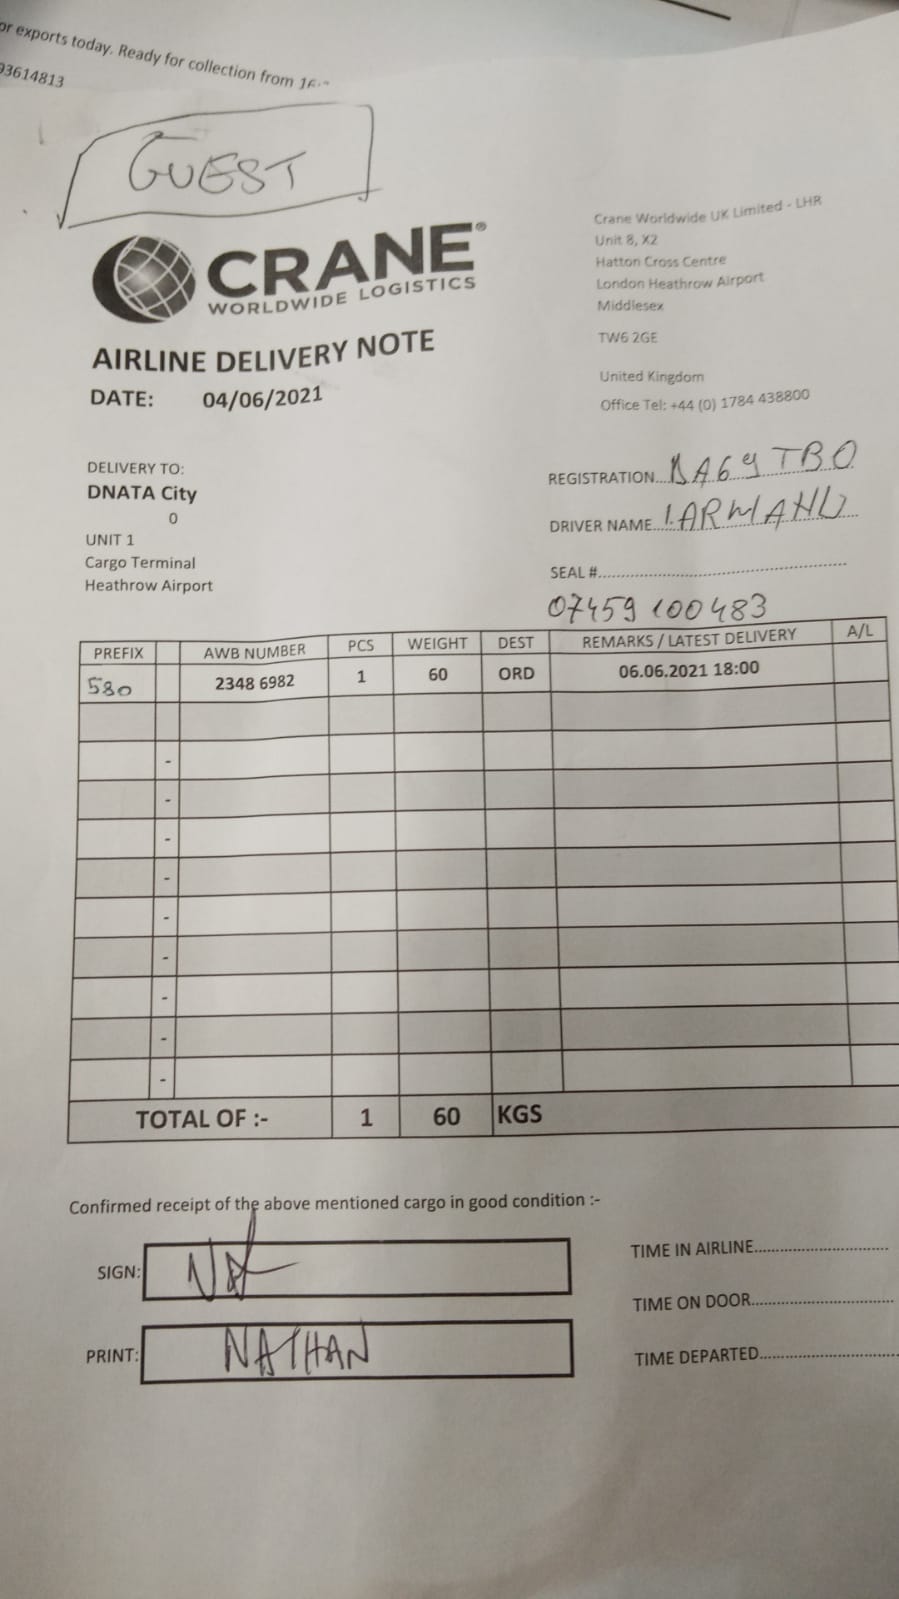 or exports today. Ready for collection from
93614813
GUEST
CRANE®
WORLDWIDE LOGISTICS
Crane Worldwide UK Limited - LHR
Unit 8, X2
Hatton Cross Centre
London Heathrow Airport
Middlesex
TW6 2GE
United Kingdom
Office Tel: +44 (0) 1784 438800
AIRLINE DELIVERY NOTE
DATE: 04/06/2021
DELIVERY TO:
DNATA City
0
UNIT 1
Cargo Terminal
Heathrow Airport
REGISTRATION...
DRIVER NAME...
SEAL #...
07459 100483
PREFIX AWB NUMBER PCS WEIGHT DEST REMARKS / LATEST DELIVERY A/L
580 2348 6982 1 60 ORD 06.06.2021 18:00
-
-
-
-
-
-
-
-
-
TOTAL OF :- 1 60 KGS
Confirmed receipt of the above mentioned cargo in good condition :-
SIGN:
PRINT: NATHAN
TIME IN AIRLINE...
TIME ON DOOR...
TIME DEPARTED...